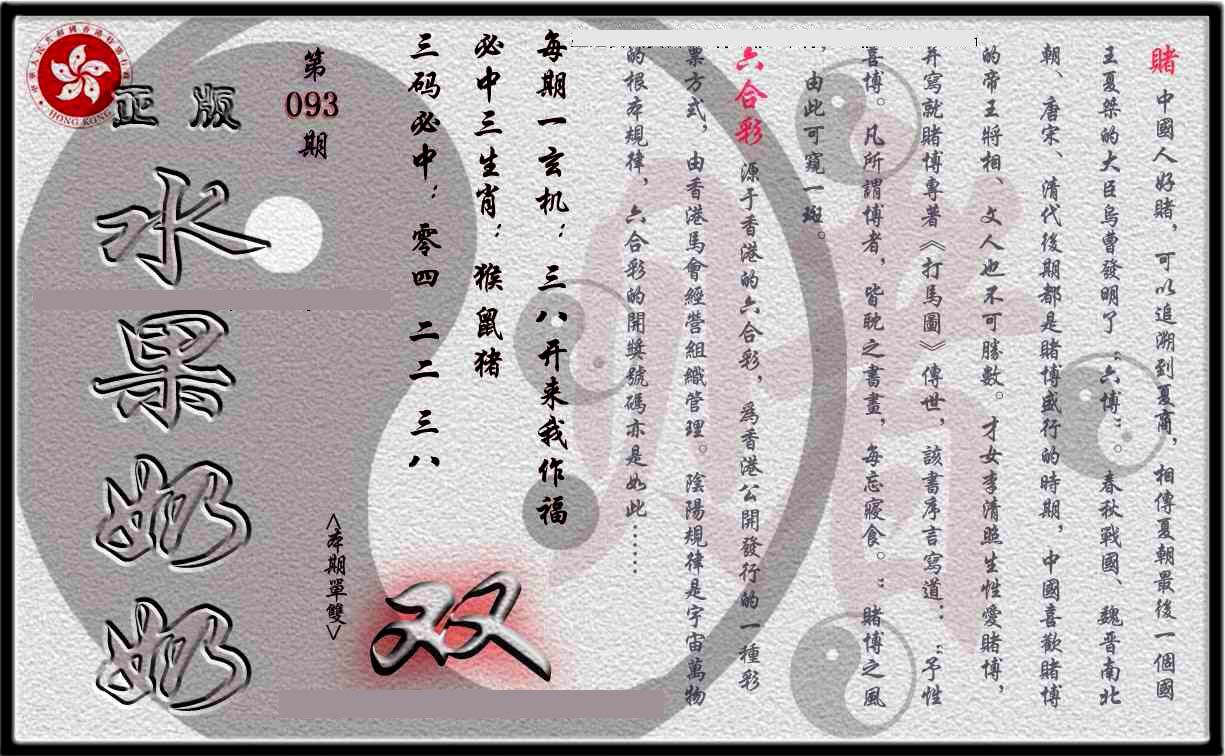 賭 中國人好賭，可以追溯到夏商，相傳夏朝最後一個國
王夏桀的大臣烏曹發明了“六博”。春秋戰國、魏晉南北
朝、唐宋、清代後期都是賭博盛行的時期，中國喜歡賭博
的帝王將相、文人也不可勝數。才女李清照生性愛賭博，
并寫就賭博專著《打馬圖》傳世，該書序言寫道：“予性
喜博。凡所謂博者，皆耽之書晝，每忘寢食。：賭博之風
，由此可窺一斑。
六合彩 源于香港的六合彩，為香港公開發行的一種彩
票方式，由香港馬會經營組織管理。陰陽規律是宇宙萬物
的根本規律，六合彩的開獎號碼亦是如此……
每期一玄机：三八开来我作福
必中三生肖：猴鼠猪
三码必中：零四 二二 三八
第
093
期
正版
水果奶奶
<本期單雙>
双
HONG KONG